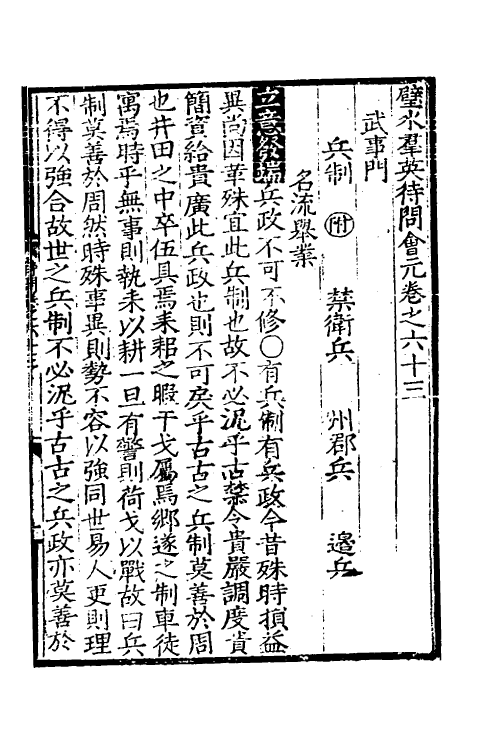 璧水羣英待問會元卷之六十三
武事門
兵制 附 禁衛兵 州郡兵 邊兵
名流舉業
立意發端兵政不可不修〇有兵制有兵政今昔殊時損益
異尚因革殊宜此兵制也故不必泥乎古禁令貴嚴調度貴
簡資給貴廣此兵政也則不可戾乎古古之兵制莫善於周
也井田之中卒伍具焉耒耜之暇干戈屬焉鄉遂之制車徒
寓焉時乎無事則執耒以耕一旦有警則荷戈以戰故曰兵
制莫善於周然時殊事異則勢不容以強同世易人更則理
不得以強合故世之兵制不必泥乎古古之兵政亦莫善於